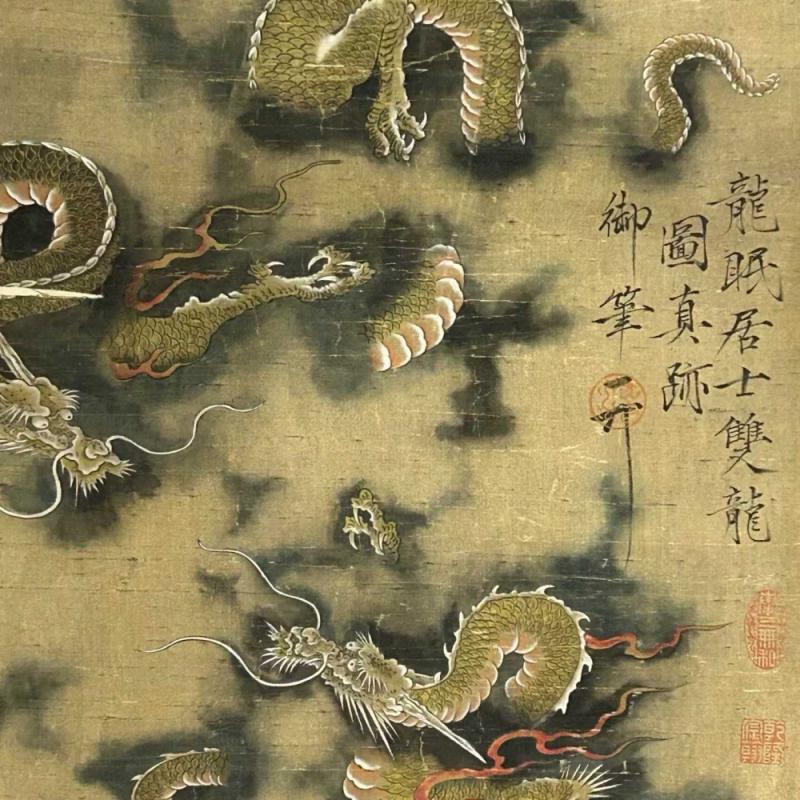 龍眠居士雙龍
圖真跡
御筆